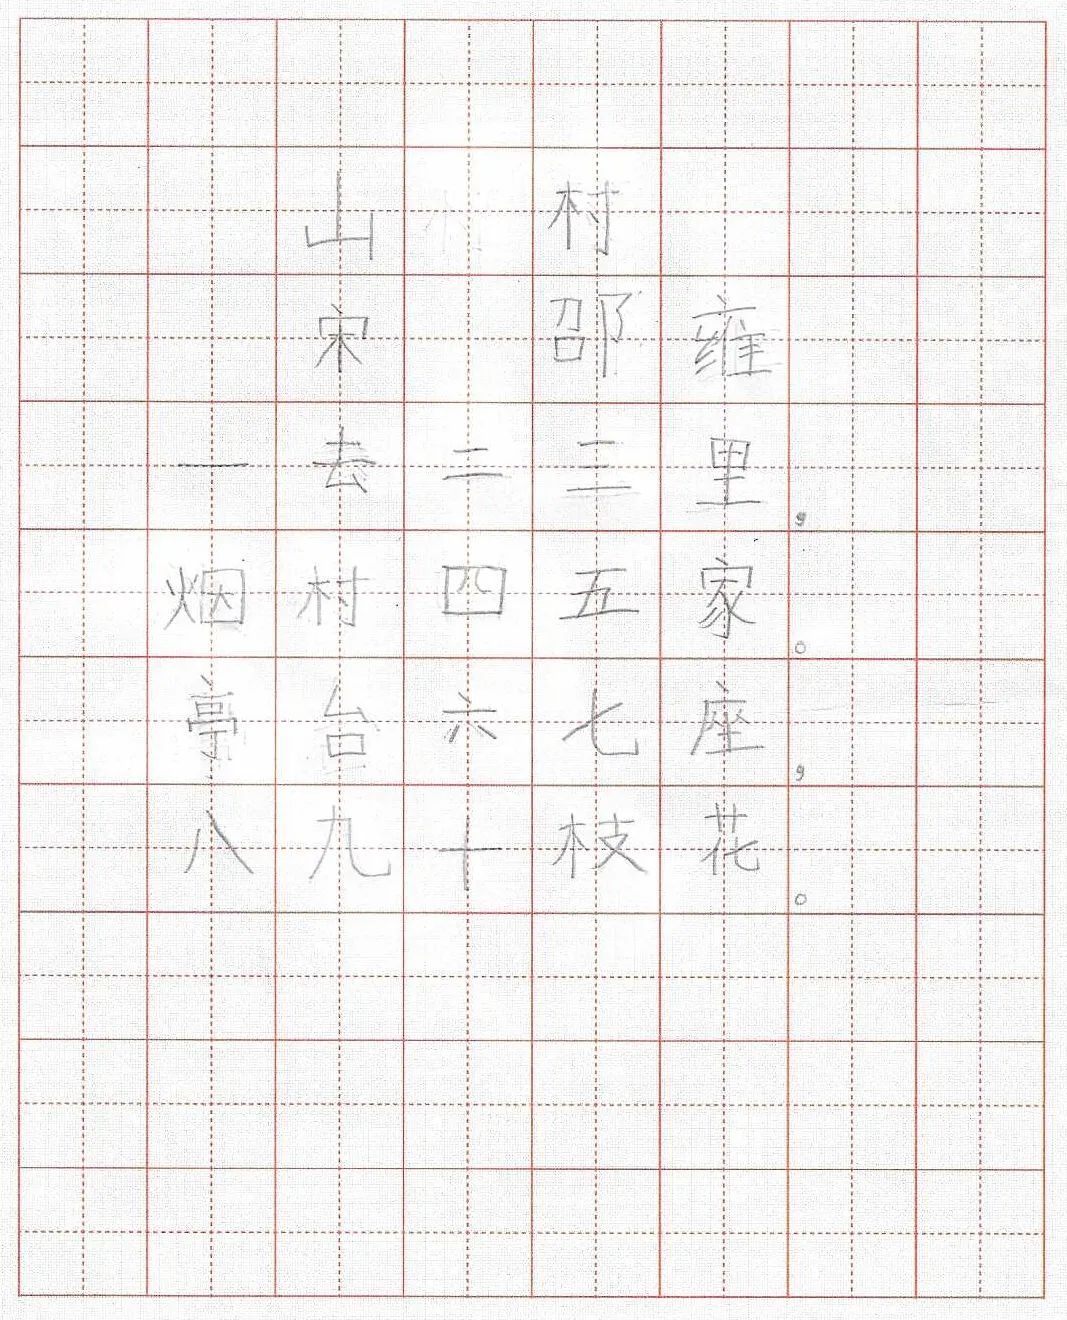 山村
宋 邵雍
一去二三里，
烟村四五家。
亭台六七座，
八九十枝花。